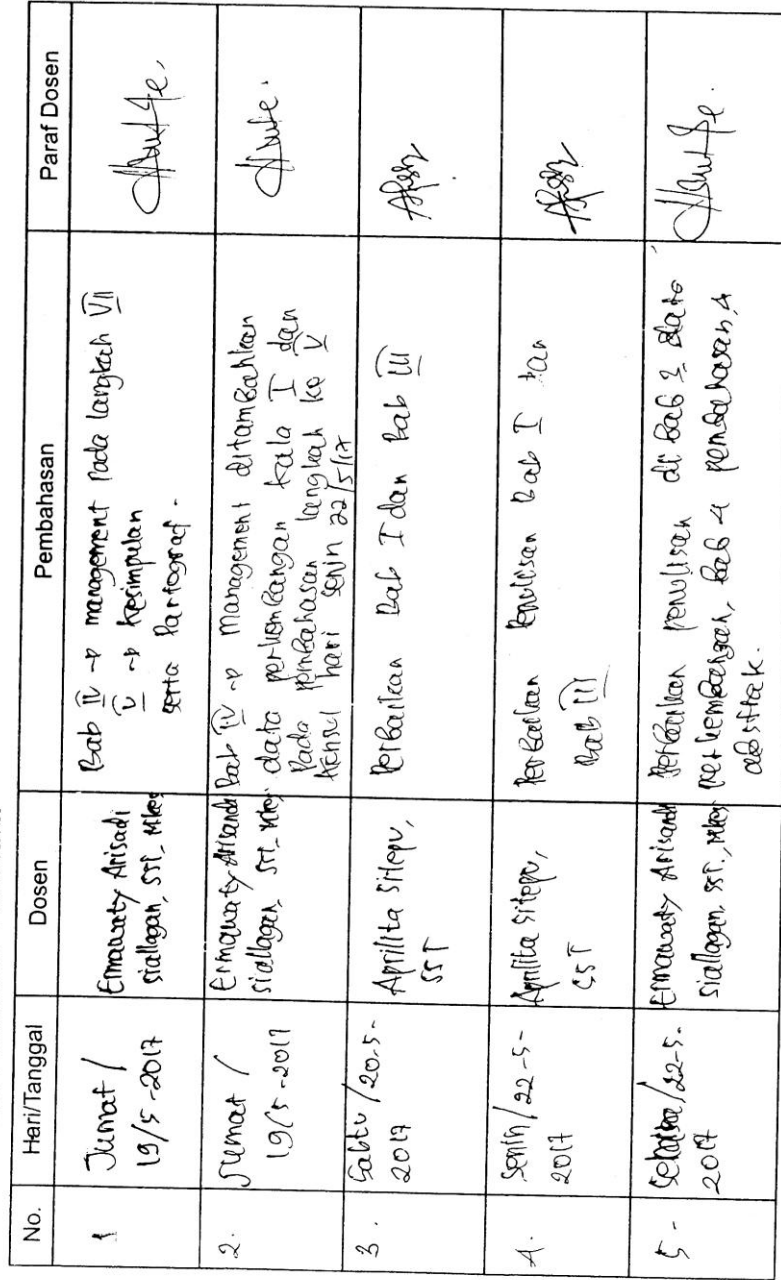 No. Hari/Tanggal Dosen Pembahasan Paraf Dosen
1 Jumat /
19/5-2017
Ermawaty Arisadi
siallagan, SST., Mkes
Bab IV → management pada langkah VII
V → kesimpulan
serta Partograf.
2. Jumat /
19/5-2017
Ermawaty Arisandi
siallagan, SST., Mkes
Bab IV → management ditambahkan
data perkembangan kala I dan
Pada pembahasan langkah ke V
konsul hari senin 22/5/17
3. Sabtu / 20-5-
2017
Aprilita Sitepu,
SST
Perbaikan Bab I dan Bab III
4. Senin / 22-5-
2017
Aprilita Sitepu,
SST
Perbaikan Penulisan Bab I dan
Bab III
5- /22-5.
2017
Ermawaty Arisandi
siallagan, SST., Mkes
Perbaikan penulisan di bab 2 data
perkembangan, bab 4 pembahasan, &
abstrak.